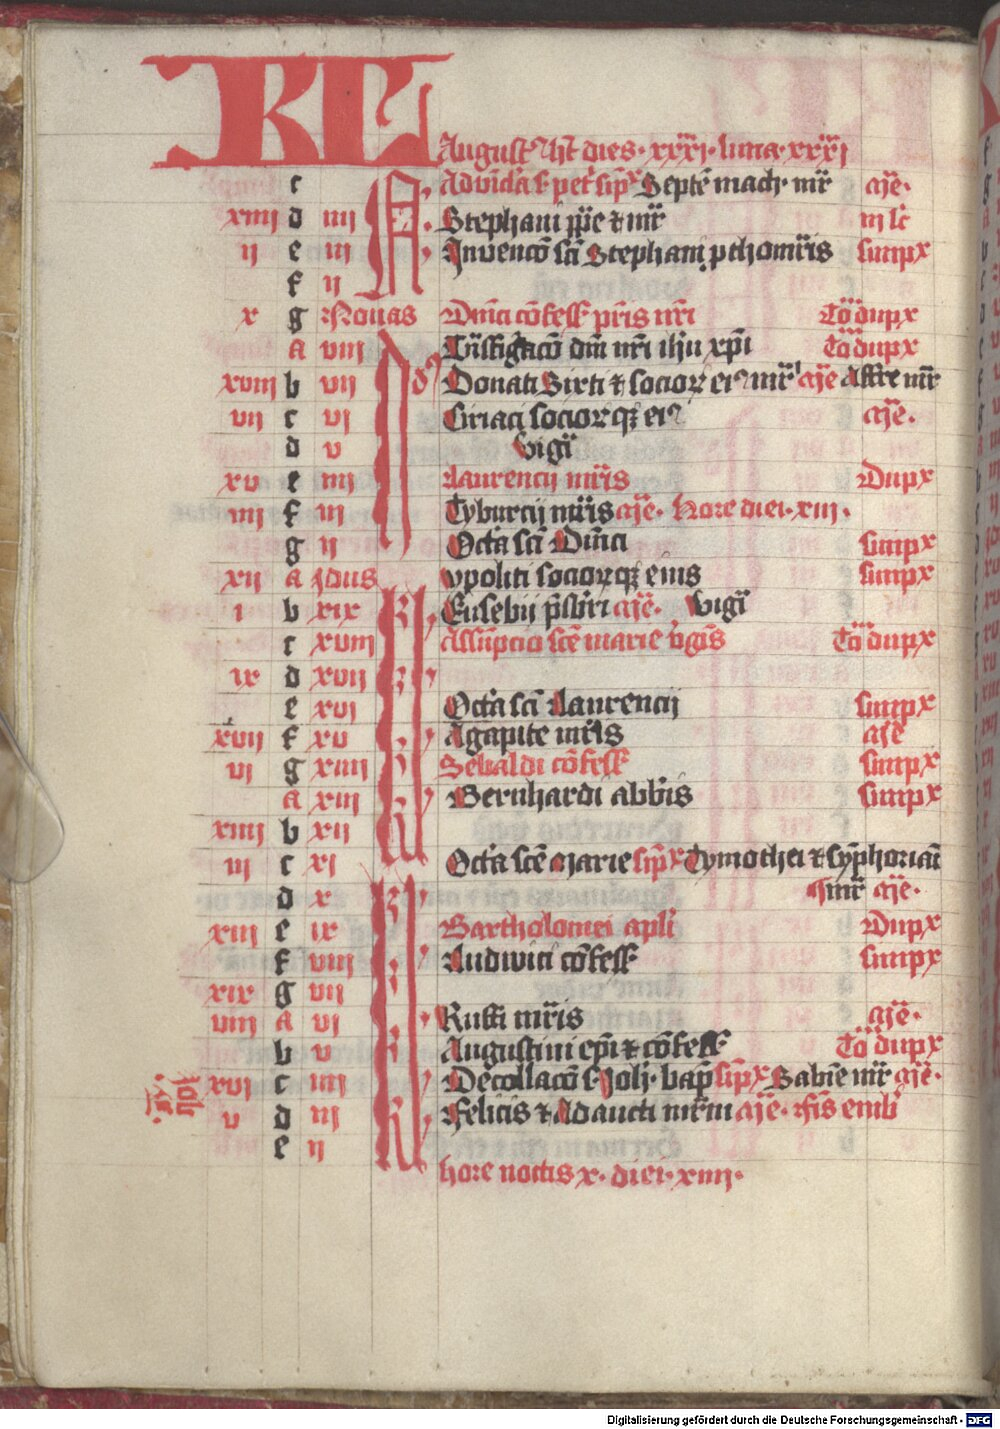 KL
August⁹ h̄t dies · xxxi · luna · xxxi
c A. Ad vin̄cl̄a s. pet̓ sīpx Septē mach · mr̄ 9jē ·
xiiij d iiij N. Stephani p̄pe ⁊ mr̄ iij lc̄
ij e iij N, Inuencō sc̄i Stephani ꝓthom̄ris simpx
f ij
x g Nonas Dn̄ici cōfess̄ pr̄is nr̄i Tō dupx
a viij Tn̄sfig̓acō dn̄i nr̄i ih̄u xp̄i Tō dupx
xviij b vij Donati Sixti ⁊ socioꝝ ei⁹ mr̄ 9jē Affre mr̄
vij c vj Ciriaci socioꝝqꝫ ei⁹ 9jē ·
d v vigī
xv e iiij Laurencij mr̄is Dupx
iiij f iij Tyburcij mr̄is 9jē · Hore diei · xiii ·
g ij Octa̓ sc̄i Dn̄ici simpx
xij a Idus ypoliti socioꝝqꝫ eius simpx
i b xix Eusebij p̄sbr̄i 9jē · vigī
c xviij Assūpcio sc̄e marie v̓gīs Tō dupx
ix d xvij
e xvi Octa̓ sc̄i Laurencij simpx
xvij f xv Agapite mr̄is 9jē
vj g xiiij Sebaldi cōfess̄ simpx
a xiij Bernhardi abb̄is simpx
xiiij b xij
iij c xj Octa̓ sc̄e Marie sīpx Tymothei ⁊ sȳphoriani
d x mr̄ 9jē ·
xiij e ix Bartholomei apl̄i Dupx
f viij Ludwici cōfess̄ simpx
xix g vij
viij a vj Ruffi mr̄is 9jē ·
b v Augustini ep̄i ⁊ cōfess̄ Tō dupx
xvj c iiij Decollacō s. Joh̄ · bap̄ sīpx Sabine mr̄ 9jē ·
v d iij Felicis ⁊ Adaucti mr̄m 9jē ·
e ij
hore noctis x · diei · xiiij ·
Digitalisierung gefördert durch die Deutsche Forschungsgemeinschaft - DFG